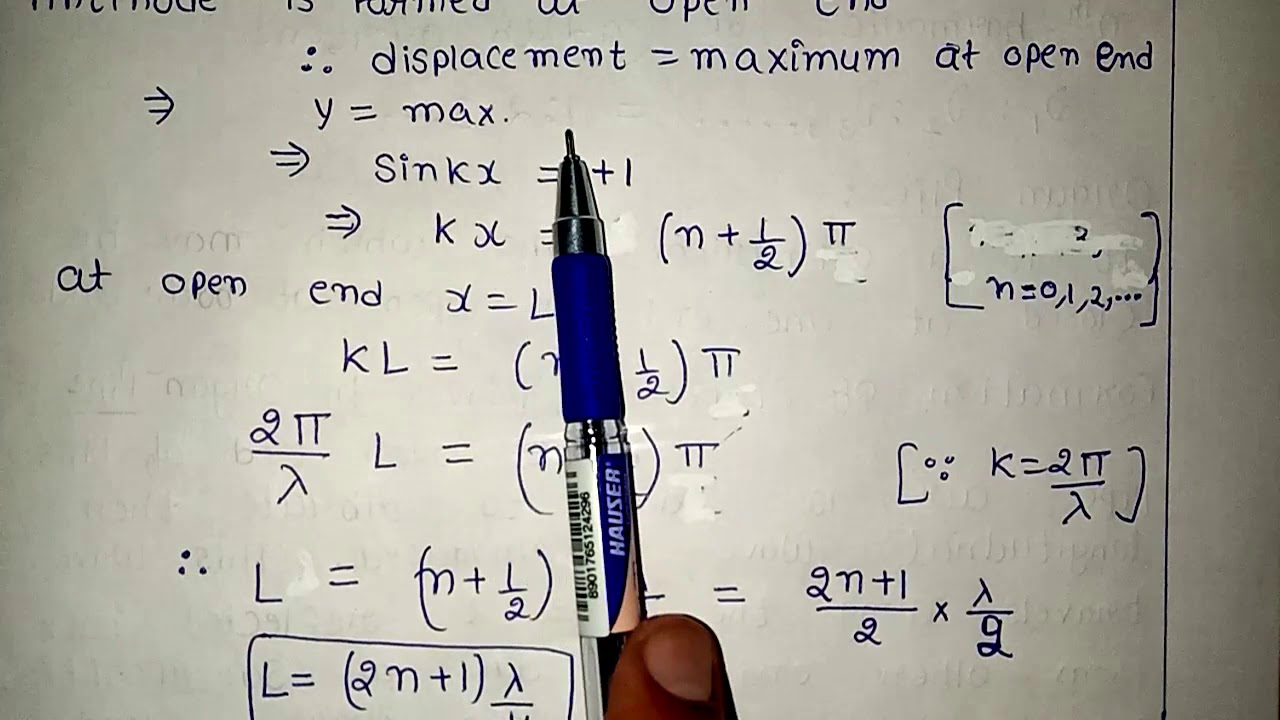 is formed at open end
∴ displacement = maximum at open end
⇒ y = max.
⇒ Sin kx = +1
⇒ kx = (n + 1/2) π [n=0,1,2,...]
at open end x = L
kL = (n 1/2) π
2π/λ L = (n ) π [∵ k = 2π/λ]
∴ L = (n + 1/2) = 2n+1/2 × λ/2
L = (2n+1) λ
HAUSER
8901765124296